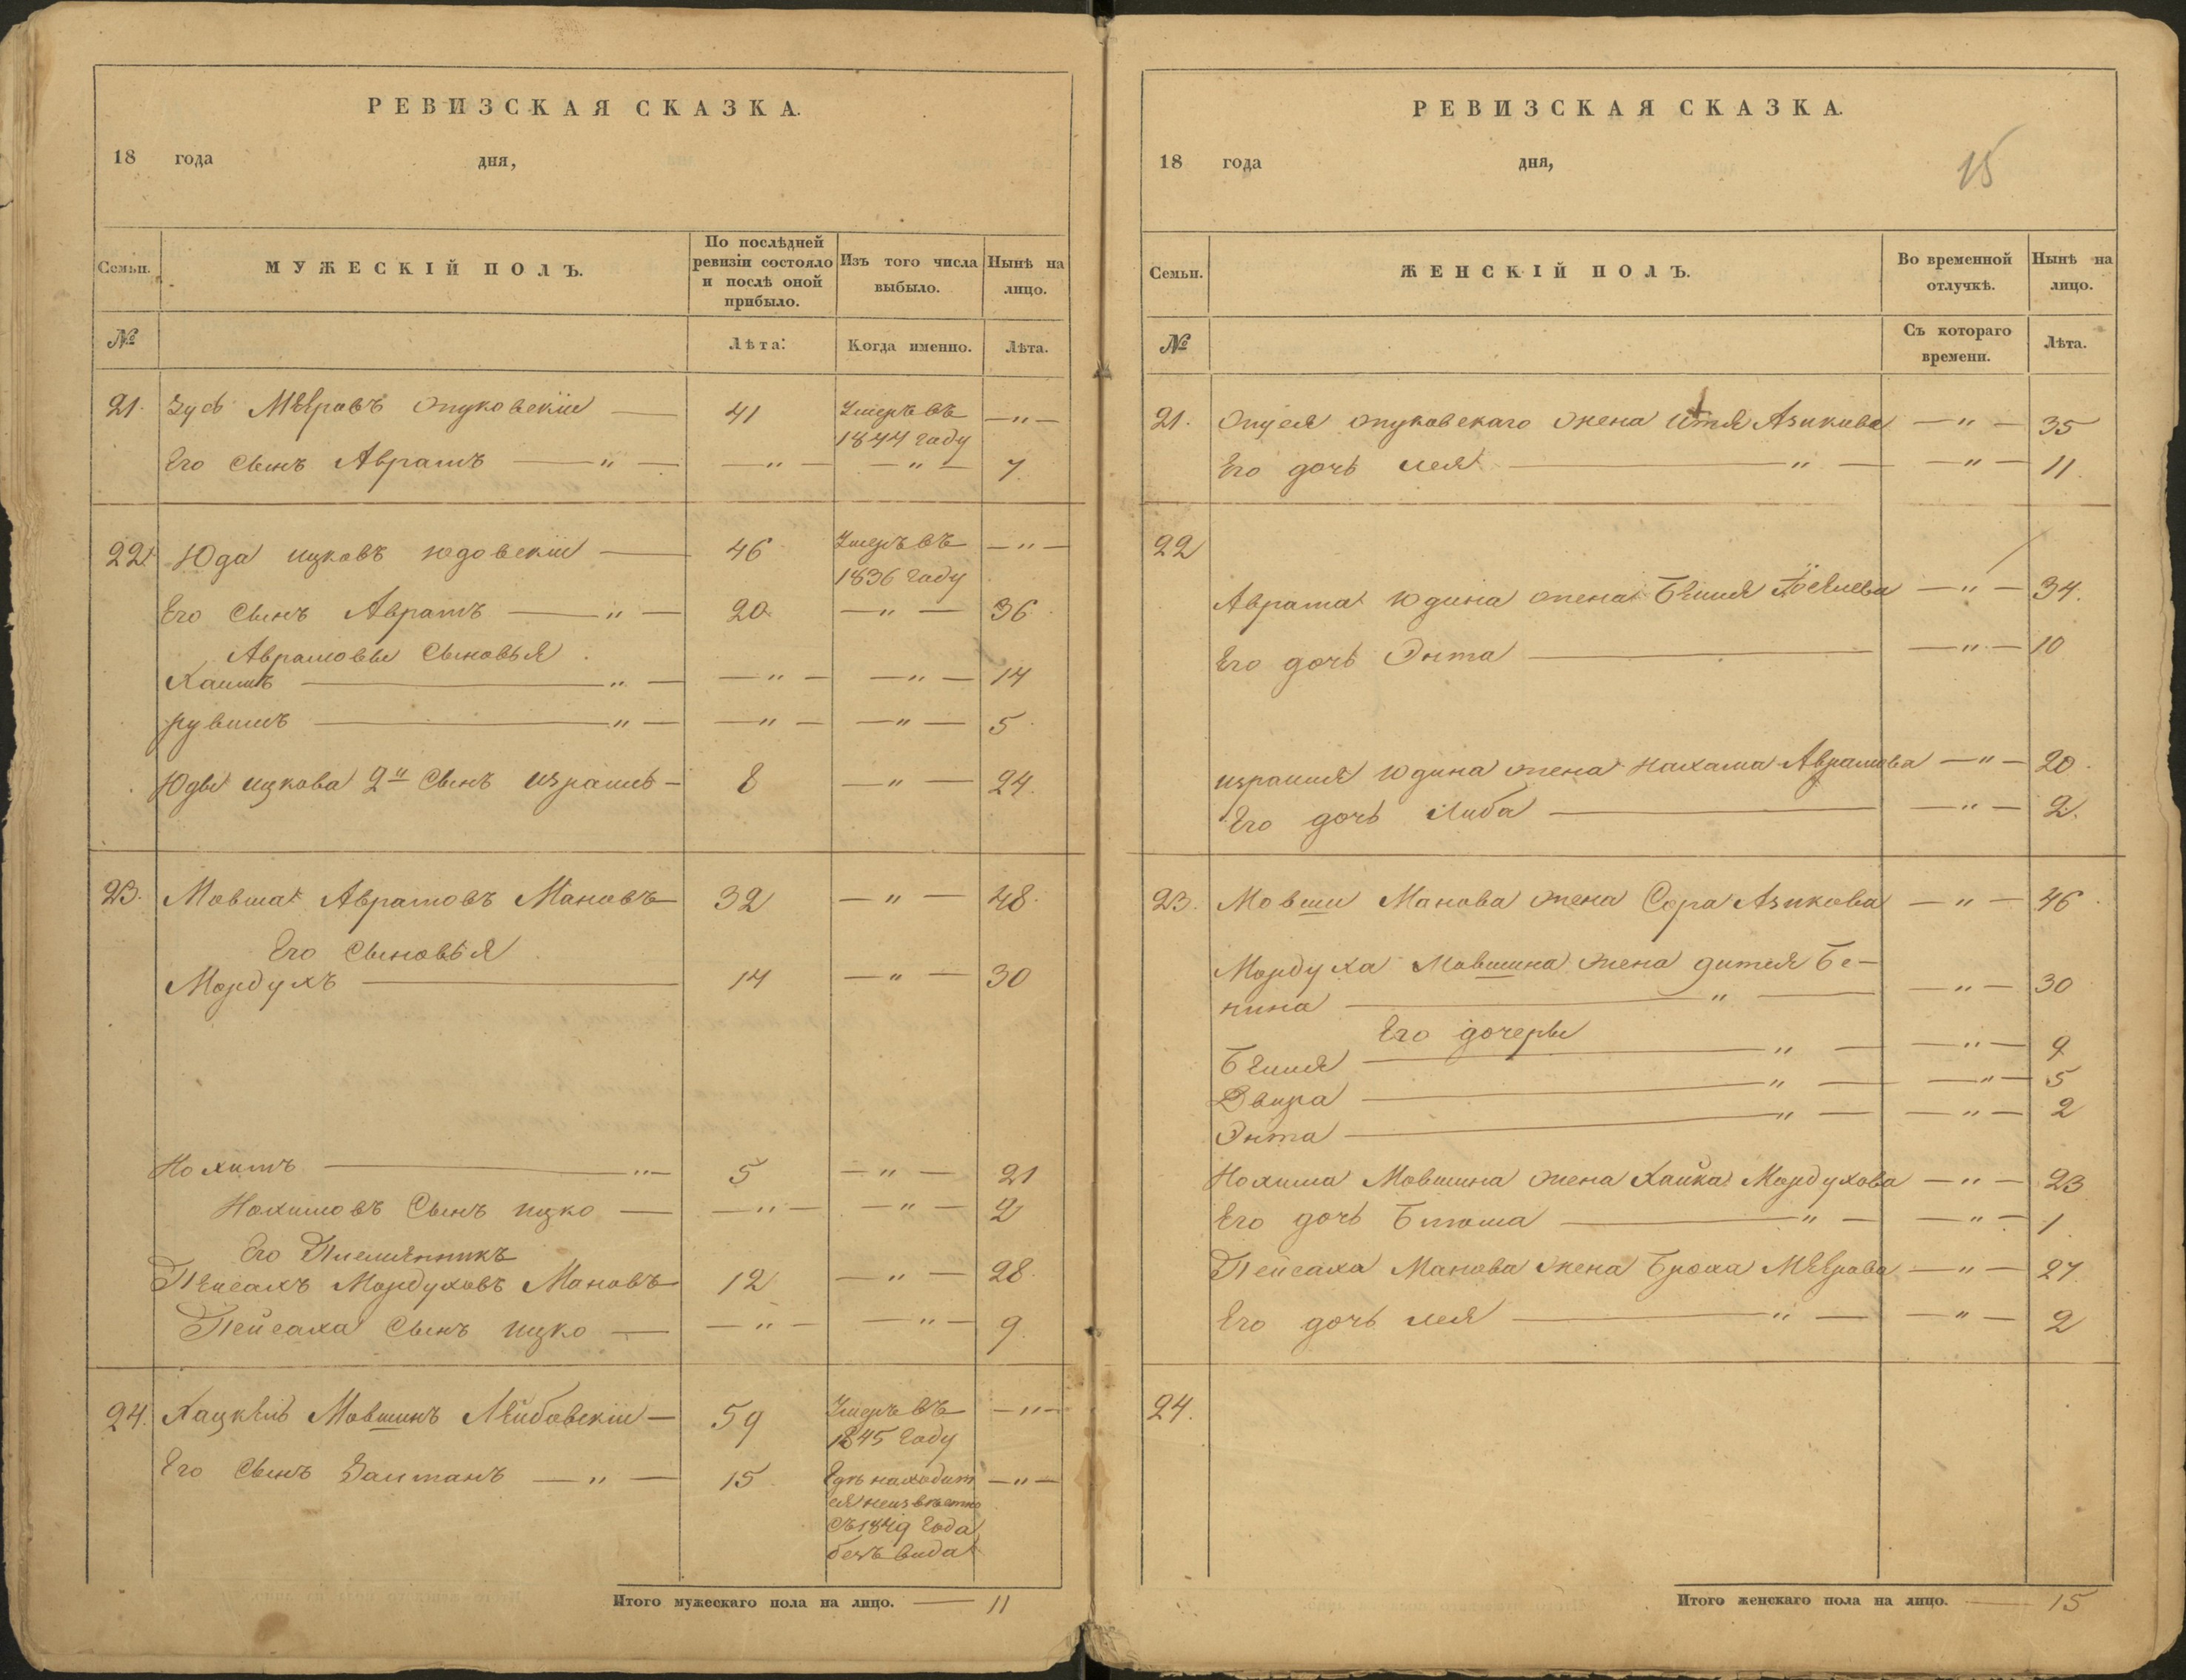 РЕВИЗСКАЯ СКАЗКА.
18 года дня,
Семьи. МУЖЕСКІЙ ПОЛЪ. По послѣдней ревизіи состояло и послѣ оной прибыло. Изъ того числа выбыло. Нынѣ на лицо.
№ Лѣта. Когда именно. Лѣта.
21. Мѣеровъ — 41 Умеръ въ 1844 году — " —
Его сынъ Абрамъ — " — — " — — " — 7
22. Юда Ицковъ Юдовскій — 46 Умеръ въ 1836 году — " —
Его сынъ Абрамъ — " — 20 — " — 36
Абрамовы сыновья
Хаимъ — " — — " — — " — 14
Рувимъ — " — — " — — " — 5
Юды Ицкова 2й сынъ Израиль — 8 — " — 24.
23. Мовша Абрамовъ Мановъ — 32 — " — 48.
Его сыновья
Мордухъ — 14 — " — 30
Нохимъ — " — 5 — " — 21
Нохимовъ сынъ Ицко — — " — — " — 2
Его племянникъ
Пейсахъ Мордуховъ Мановъ — 12 — " — 28.
Пейсаха сынъ Ицко — — " — — " — 9.
24. Хацкель Мовшинъ Лейбовскій — 59 Умеръ въ 1845 году — " —
Его сынъ Залманъ — " — 15 Гдѣ находится неизвѣстно съ 1849 года безъ вида — " —
Итого мужескаго пола на лицо. — 11
РЕВИЗСКАЯ СКАЗКА.
18 года дня,
15
Семьи. ЖЕНСКІЙ ПОЛЪ. Во временной отлучкѣ. Нынѣ на лицо.
№ Съ котораго времени. Лѣта.
21. жена Азикова — " — 35
Его дочь Лея — " — — " — 11
22
Абрама Юдина жена — " — 34.
Его дочь Энта — — " — 10
Израиля Юдина жена Нахама Абрамова — " — 20.
Его дочь Либа — — " — 2.
23. Мовши Манова жена Сора Азикова — " — 46
Мордуха Мовшина жена Бе-
нина — " — — " — 30
Его дочеры
Бейля — " — — " — 9
Двира — " — — " — 5
Энта — " — — " — 2
Нохима Мовшина жена Хайка Мордухова — " — 23
Его дочь Блюма — " — — " — 1
Пейсаха Манова жена Броха Мѣерова — " — 27
Его дочь Лея — " — — " — 2
24.
Итого женскаго пола на лицо. — 15